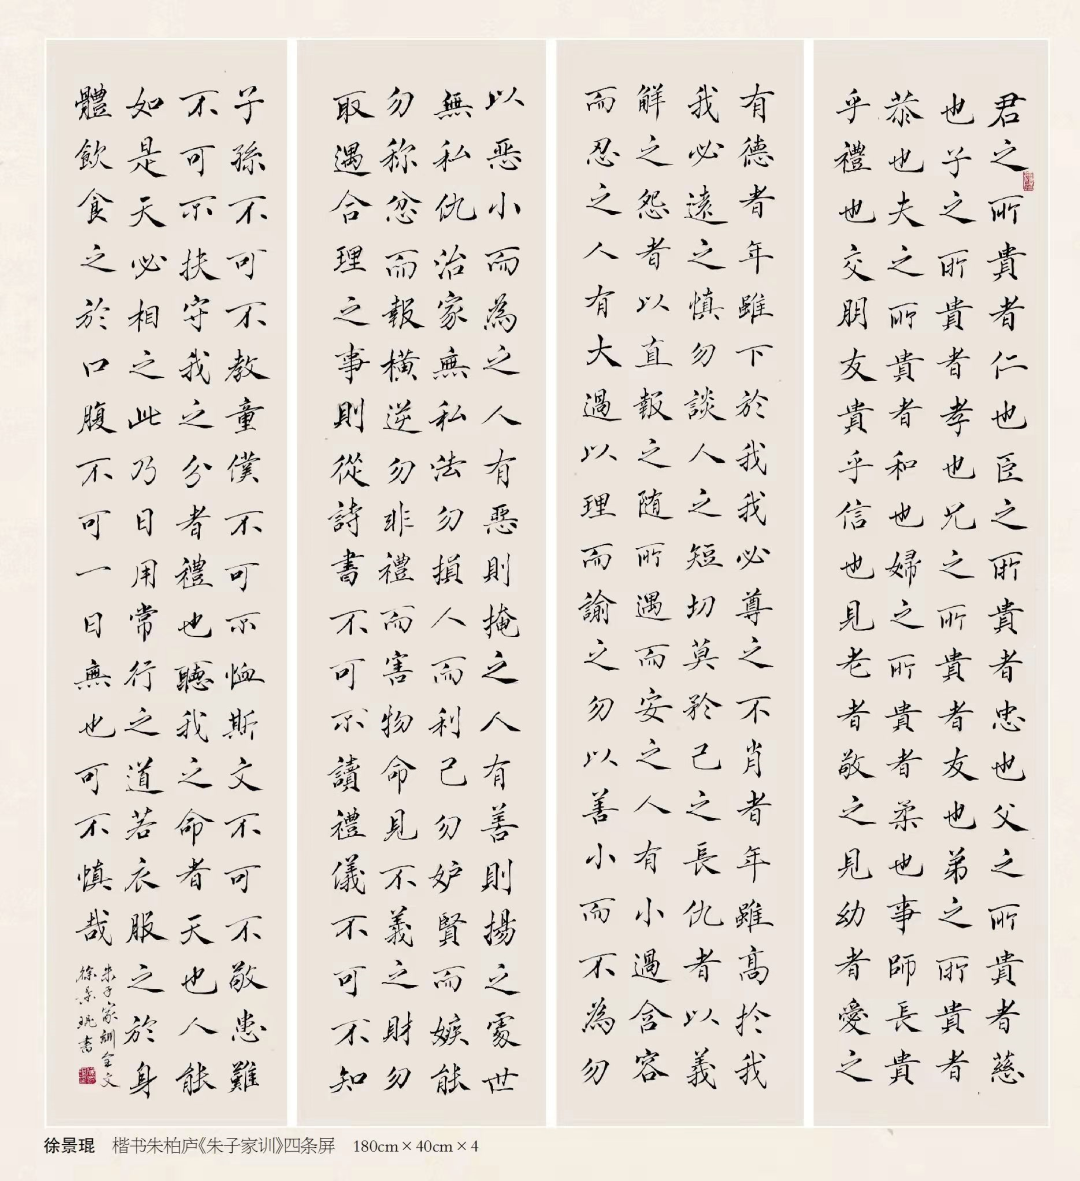 君之所貴者仁也臣之所貴者忠也父之所貴者慈
也子之所貴者孝也兄之所貴者友也弟之所貴者
恭也夫之所貴者和也婦之所貴者柔也事師長貴
乎禮也交朋友貴乎信也見老者敬之見幼者愛之
有德者年雖下於我我必尊之不肖者年雖高於我
我必遠之慎勿談人之短切莫矜己之長仇者以義
解之怨者以直報之随所遇而安之人有小過含容
而忍之人有大過以理而諭之勿以善小而不為勿
以惡小而為之人有惡則掩之人有善則揚之處世
無私仇治家無私法勿損人而利己勿妒賢而嫉能
勿称忿而報橫逆勿非禮而害物命見不義之財勿
取遇合理之事則從詩書不可不讀禮儀不可不知
子孫不可不教童僕不可不恤斯文不可不敬患難
不可不扶守我之分者禮也聽我之命者天也人能
如是天必相之此乃日用常行之道若衣服之於身
體飲食之於口腹不可一日無也可不慎哉
朱子家訓全文
徐景琨書
徐景琨 楷书朱柏庐《朱子家训》四条屏 180cm×40cm×4